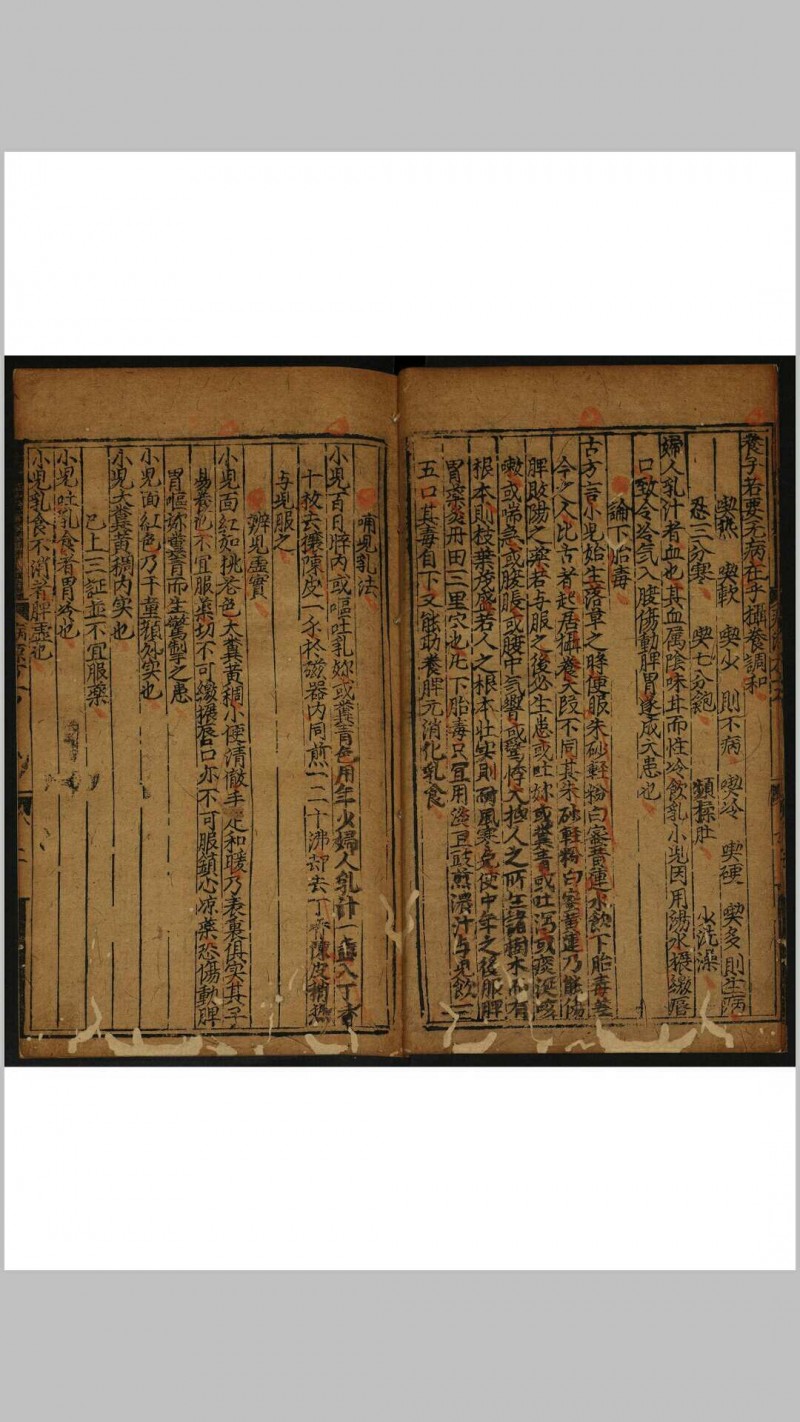 養子若要无病在乎攝養調和
喫熱 喫軟 喫少 則不病 喫冷 喫硬 喫多 則生病
忍三分寒 喫七分飽 頻揉肚 少洗澡
婦人乳汁者血也其血属陰味甘而性冷飲乳小児因用湯水摄繳唇
口致令冷気入腹傷動脾胃遂成大患也
論下胎毒
古方言小児始生落草之時便服朱砂軽粉白蜜黄連水飲下胎毒盖
今之人比古者起居攝養大段不同其朱砂軽粉白蜜黄連乃能傷
脾敗陽之藥若与服之後必生患或吐妳或糞青或吐瀉或痰涎咳
嗽或喘急或腹脹或腹中気響或驚悸大抵人之所生諸樹木亦有
根本則枝葉茂盛若人之根本壮实則耐風寒免使中年之後服脾
胃藥灸丹田三里穴也凡下胎毒只宜用淡豆豉煎濃汁与児飲三
五口其毒自下又能助養脾元消化乳食
哺児乳法
小児百日晬内或嘔吐乳妳或糞青色用年少婦人乳汁一盏入丁香
十枚去穰陳皮一分於磁器内同煎一二十沸却去丁香陳皮稍热
与児服之
辨児虚實
小児面紅如桃花色大糞黄稠小便清徹手足和暖乃表裏俱实其子
易養也不宜服藥切不可繳摄唇口亦不可服鎮心凉藥恐傷動脾
胃嘔妳糞青而生驚掣之患
小児面紅色乃干童顔外实也
小児大糞黄稠内实也
已上三証並不宜服藥
小児吐乳食者胃冷也
小児乳食不消者脾虚也